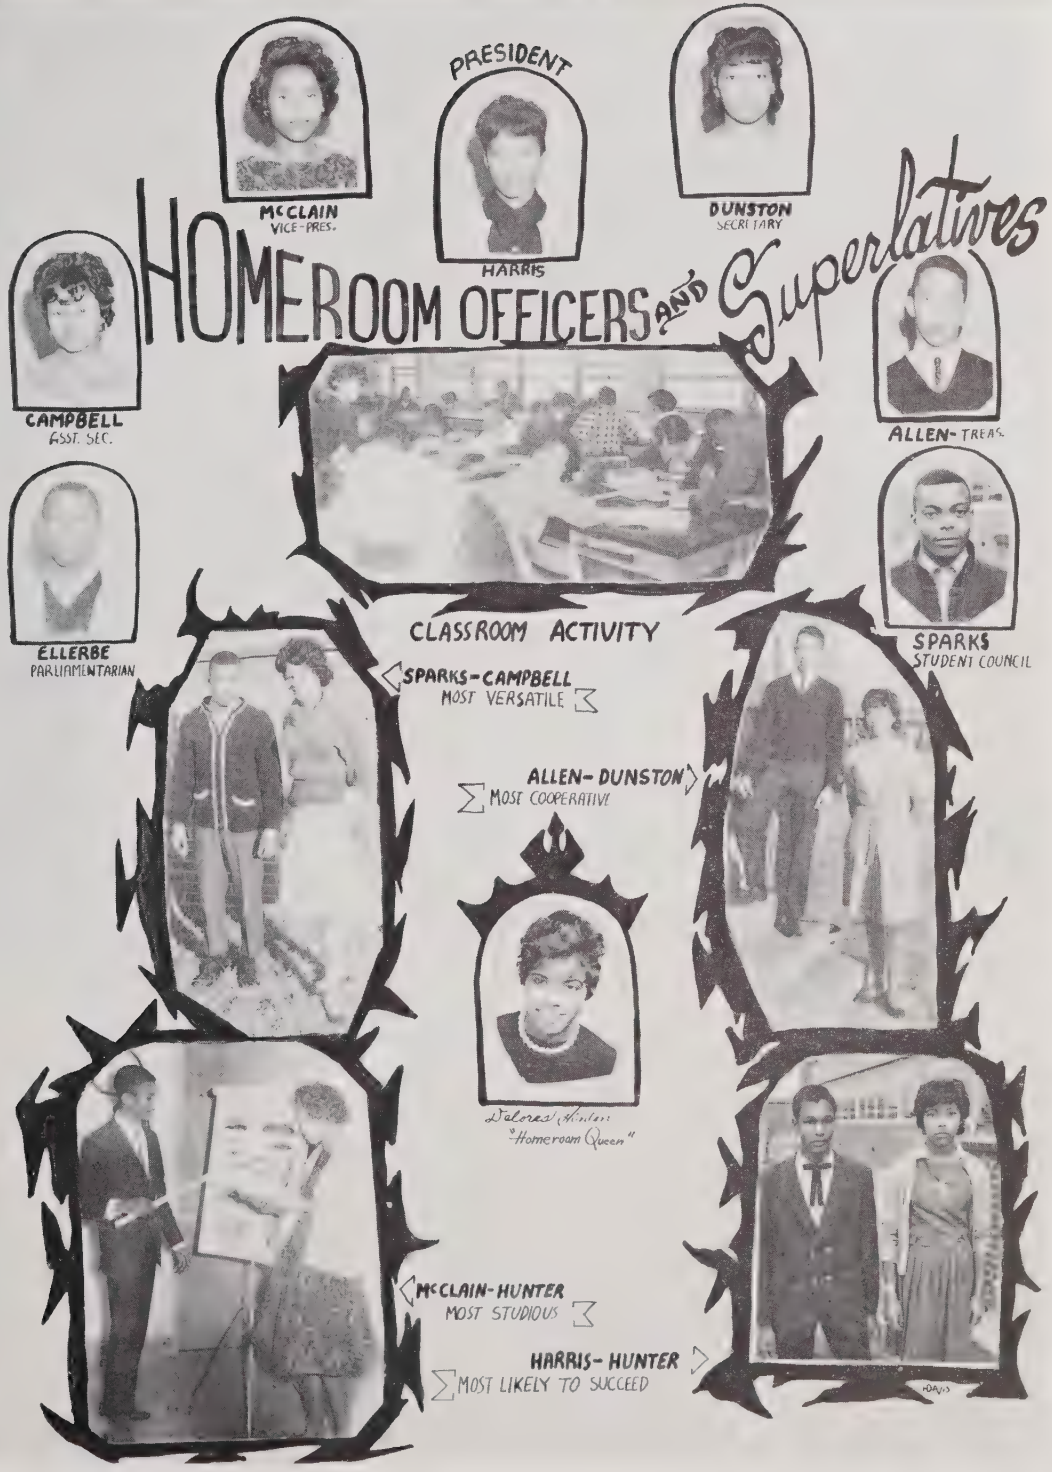 PRESIDENT
McCLAIN
VICE-PRES.
HARRIS
DUNSTON
SECRETARY
HOMEROOM OFFICERS AND Superlatives
CAMPBELL
ASST. SEC.
ALLEN- TREAS.
ELLERBE
PARLIAMENTARIAN
SPARKS
STUDENT COUNCIL
CLASSROOM ACTIVITY
SPARKS-CAMPBELL
MOST VERSATILE
ALLEN-DUNSTON
MOST COOPERATIVE
Delores Hinton
"Homeroom Queen"
McCLAIN-HUNTER
MOST STUDIOUS
HARRIS-HUNTER
MOST LIKELY TO SUCCEED
DAVIS